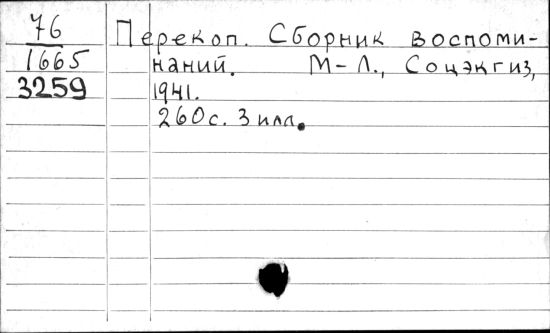 76
1665
3259
Перекоп. Сборник воспоми-
наний. М-Л., Соцэкгиз,
1941.
260с. 3 илл.